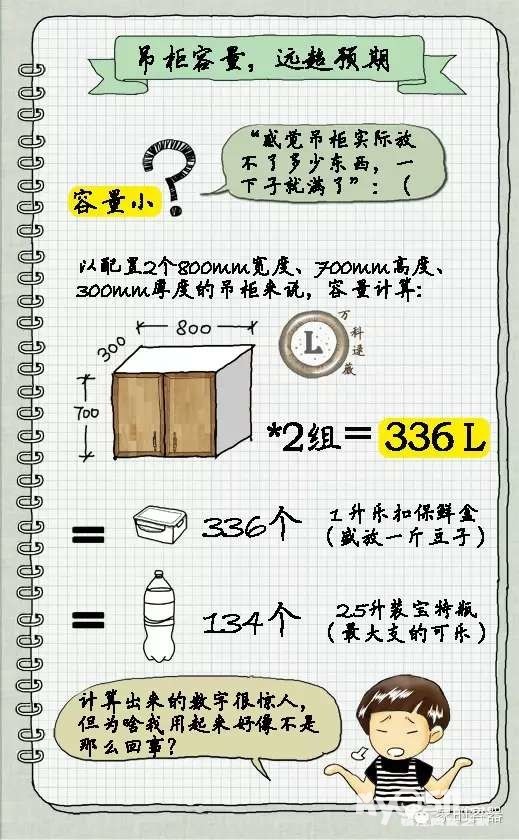 吊柜容量，远超预期
“感觉吊柜实际放
不了多少东西，一
下子就满了”：（
容量小
以配置2个800mm宽度、700mm高度、
300mm厚度的吊柜来说，容量计算：
800
300
700
L
万科速葳
*2组＝336 L
= 336个
1升乐扣保鲜盒
（盛放一斤豆子）
= 134个
2.5升装宝特瓶
（最大支的可乐）
计算出来的数字很惊人，
但为啥我用起来好像不是
那么回事？